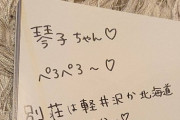 琴子ちゃん♡
ぺろぺろ〜♡
別荘は軽井沢か北海道